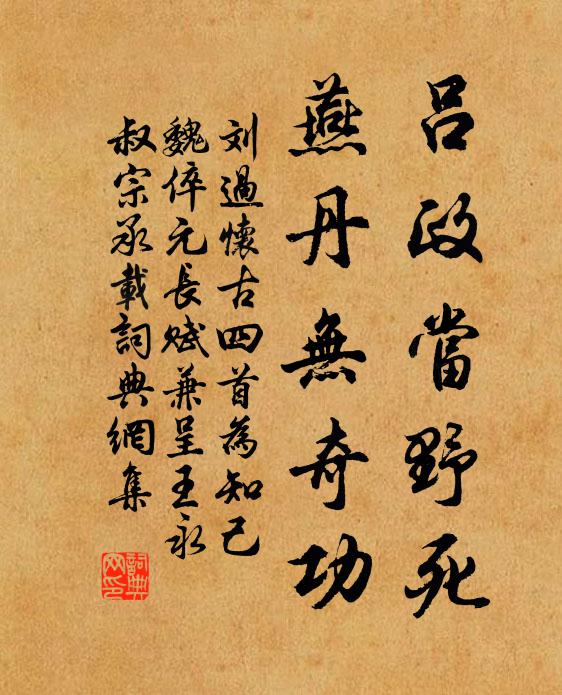 呂政當野死
燕丹無奇功
刘過懷古四首為知己
魏倅元長赋兼呈王永
叔宗承載詞典網集
詞典
网印